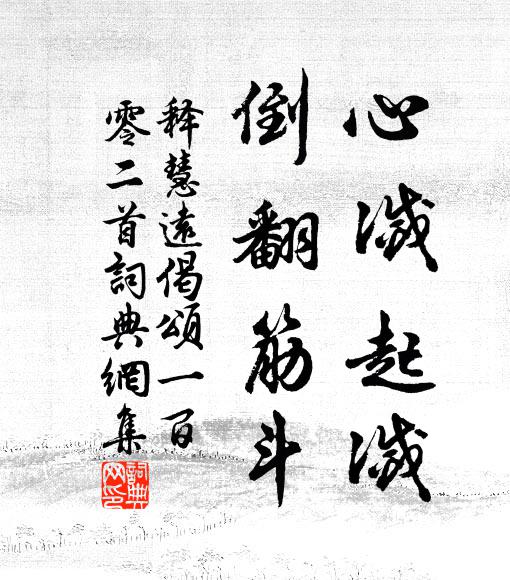 心滅起滅
倒翻筋斗
释慧遠偈頌一百
零二首詞典網集
詞典
网印